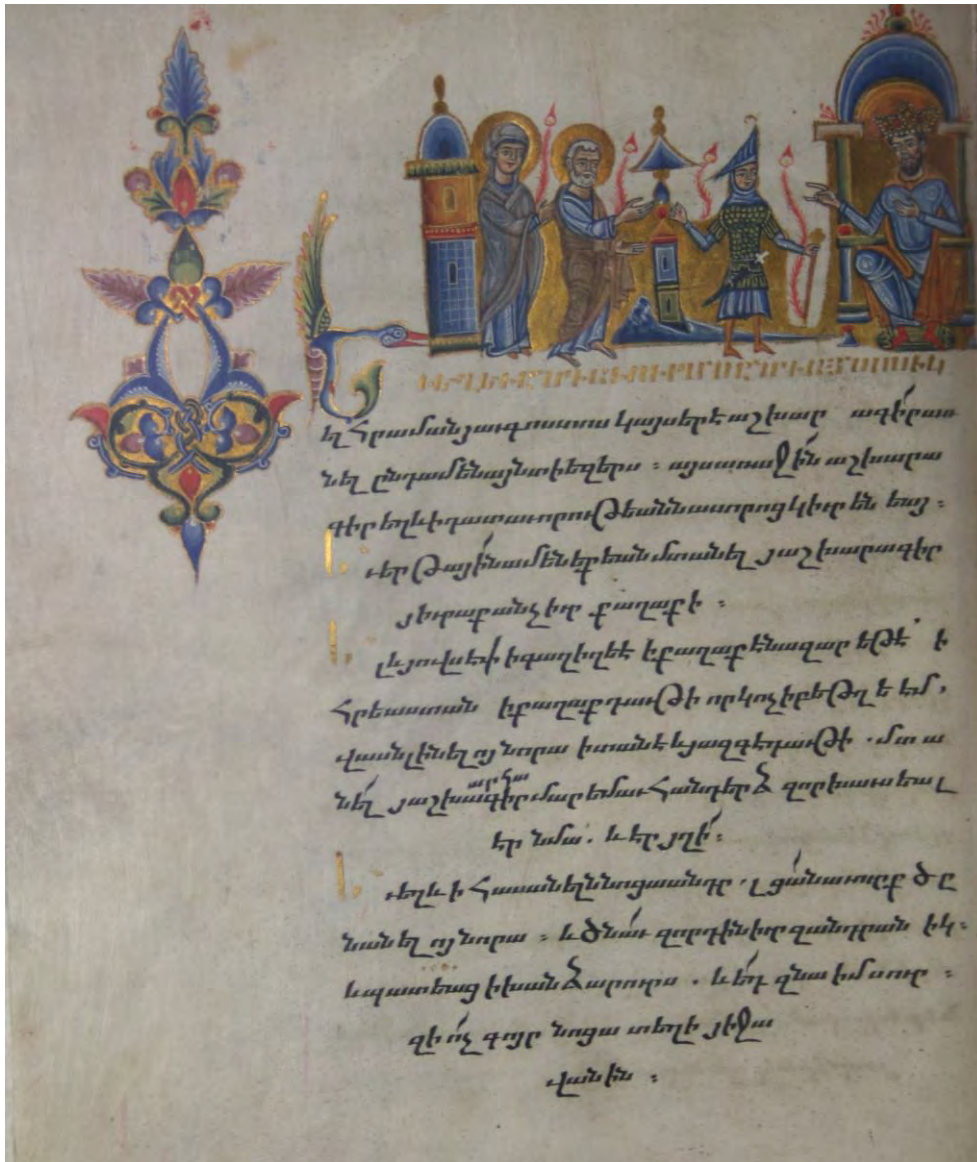 ԵՒ ԵՂԵՒ ԸՆԴ ԱՒՈՒՐՍՆ ԸՆԴ ԱՅՆՈՍԻԿ
ել հրաման յաւգոստոս կայսերէ աշխար ագիր առ
նել ընդ ամենայն տիեզերս ։ այս առաջին աշխարա
գիր եղև ի դատաւորութեանն ասորոց կիւրենեայ ։
Եւ երթային ամենեքեան մտանել յաշխարագիր
յիւրաքանչիւր քաղաքի ։
Ել և յովսեփ ի գաղիղեէ ի քաղաքէ նազարեթէ ի
հրեաստան ի քաղաք դաւթի որ կոչի բեթղեեմ,
վասն լինելոյ նորա ի տանէ և յազգէ դաւթի . մտա
նել յաշխարհագիր մարեմաւ հանդերձ զոր խաւսեալ
էր նմա . և էր յղի ։
Եւ եղև ի հասանելն նոցա անդր . լցան աւուրք ծը
նանելոյ նորա ։ և ծնաւ զորդին իւր զանդրանիկ ։
և պատեաց ի խանձարուրս . և եդ զնա ի մսուր ։
զի ոչ գոյր նոցա տեղի յիջա
վանին ։